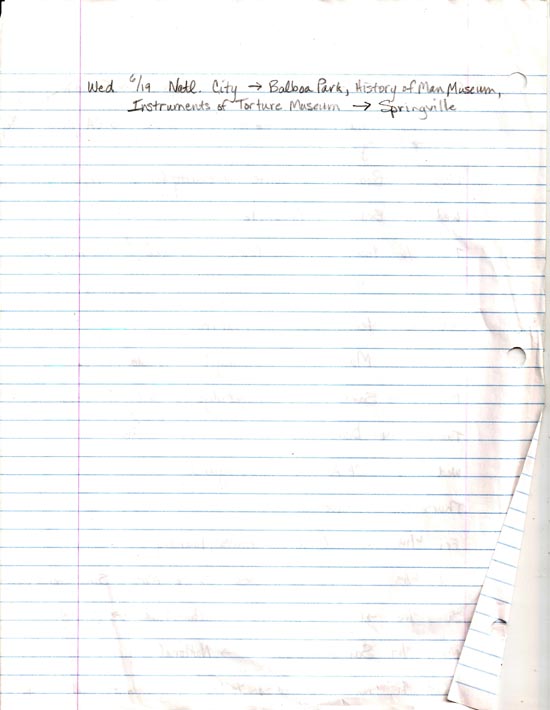 Wed 6/19 Natl. City → Balboa Park, History of Man Museum,
Instruments of Torture Museum → Springville